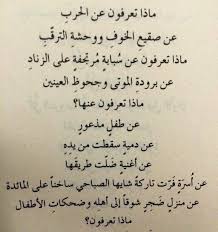 ماذا تعرفون عن الحرب
عن صقيع الخوف ووحشة الترقب
ماذا تعرفون عن سبابة مرتجفة على الزناد
عن برودة الموتى وجحوظ العينين
ماذا تعرفون عنها؟
عن طفل مذعور
عن دمية سقطت من يده
عن أغنية ضلت طريقها
عن أسرة فرت تاركة شايها الصباحي ساخنا على المائدة
عن منزل ضجر شوقا إلى أهله وضحكات الأطفال
ماذا تعرفون؟